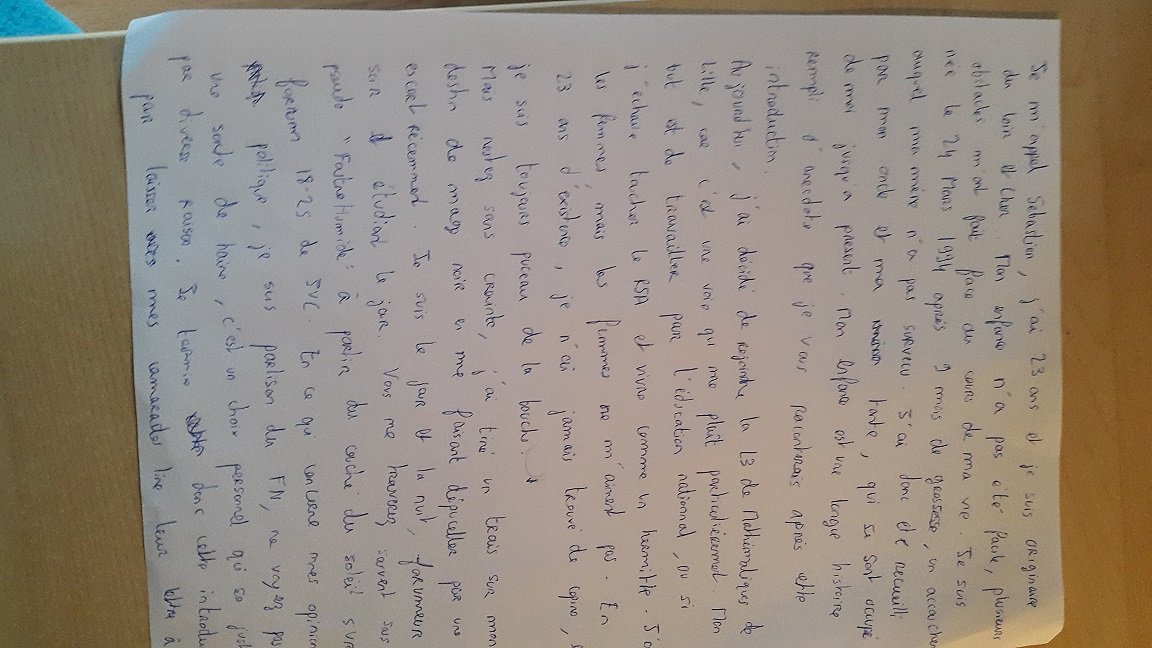 Je m'appel Sébastien, j'ai 23 ans et je suis originaire
du loir et Cher. Mon enfance n'a pas été facile, plusieurs
obstacles m'ont fait face au cours de ma vie. Je suis
née le 24 Mars 1994 après 9 mois de grossesse, un accouchem
auquel ma mère n'a pas survecu. J'ai donc été recueilli
par mon oncle et ma tante, qui se sont occupé
de moi jusqu'à present. Mon enfance est une longue histoire
rempli d'anecdote que je vous raconterais après cette
introduction.
Aujourd'hui, j'ai décidé de rejoindre la L3 de Mathématiques de
Lille, car c'est une voie qui me plait particulièrement. Mon
but est de travailler pour l'éducation national, ou si
j'échoue toucher le RSA et vivre comme un hermitte. J'a
les femmes mais les femmes ne m'aiment pas. En
23 ans d'existence, je n'ai jamais trouvé de copine, s
je suis toujours puceau de la bouche
Mais restez sans crainte, j'ai tiré un trais sur mon
destin de mage noir en me faisant dépuceller par une
escort récemment. Je suis le jour et la nuit, forumeur
soir étudiant le jour. Vous me trouverez souvent sous
pseudo "FoutreHumide" à partir du couché du soleil sur
forum 18-25 de JVC. En ce qui concerne mes opinion
politique, je suis partison du FN, ne voyez pas
une sorte de haine, c'est un choix personnel qui se just
par diverse raison. Je termine donc cette introdu
par laisser mes camarades lire leur lettre à